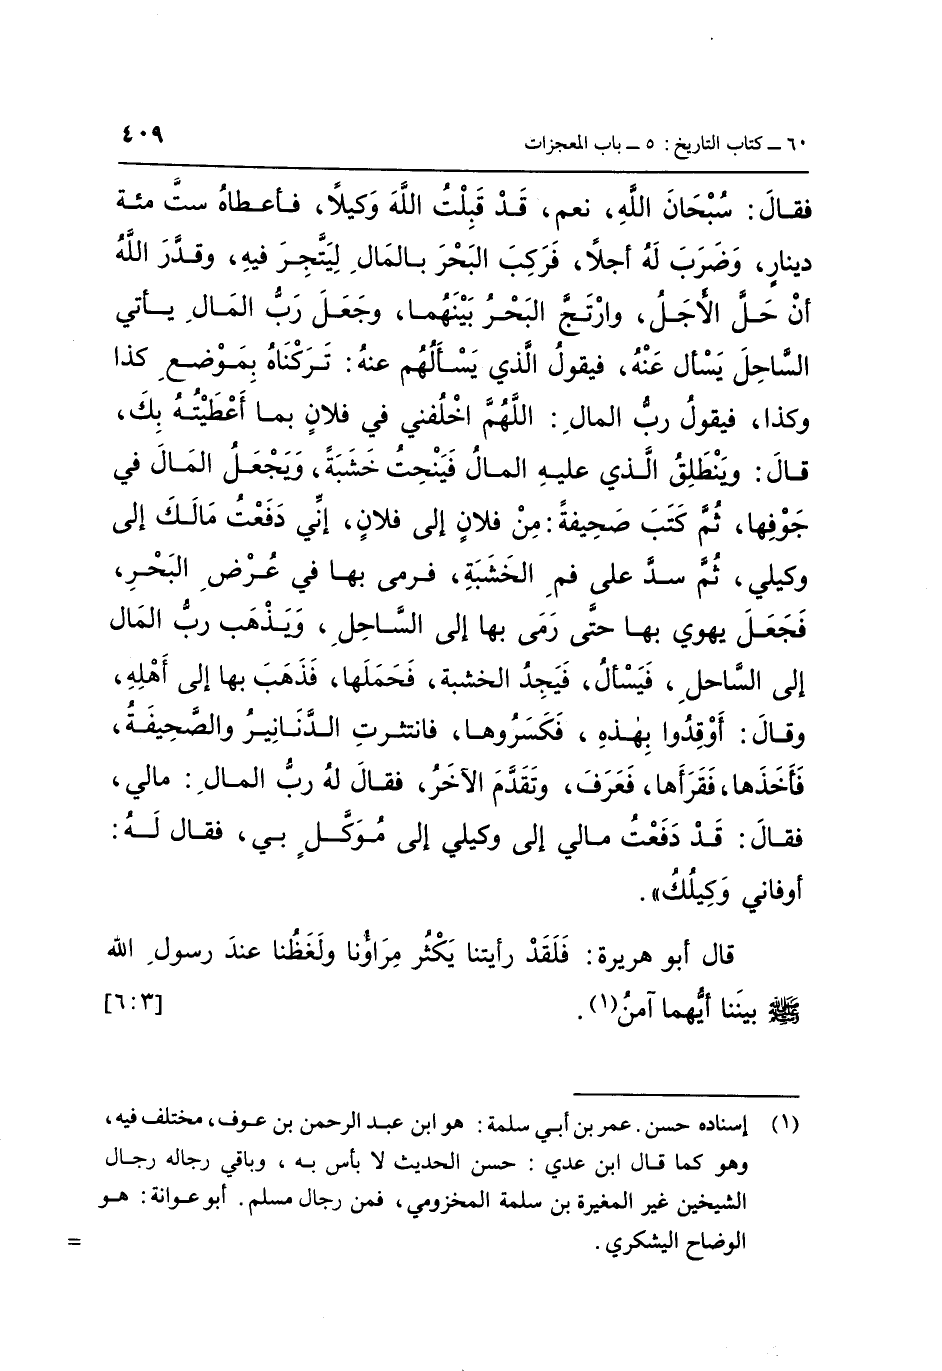 ٦٠ ـ كتاب التاريخ : ٥ ـ باب المعجزات ٤٠٩
فقالَ : سُبْحَانَ اللَّهِ ، نعم ، قَدْ قَبِلْتُ اللَّهَ وَكيلًا ، فـأعـطاهُ ستَّ مئـة
دينارٍ ، وَضَرَبَ لَهُ أجلًا ، فَرَكِبَ البَحْرَ بـالمَالِ لِيَتَّجِـرَ فيهِ ، وقـدَّرَ اللَّهُ
أنْ حَـلَّ الأجَـلُ ، وارْتَـجَّ البَحْـرُ بَيْنَهُمـا ، وجَعَـلَ رَبُّ المَـالِ يـأتي
السَّاحِلَ يَسْأل عَنْهُ ، فيقولُ الَّذي يَسْـألُهُم عنهُ : تَـرَكْنَاهُ بِمَـوْضـعِ كذا
وكذا ، فيقولُ ربُّ المالِ : اللَّهُمَّ اخْلُفني في فلانٍ بمـا أَعْطَيْتُـهُ بِكَ ،
قـالَ : ويَنْطَلِقُ الَّـذي عليـهِ المـالُ فَيَنْحِتُ خَشَبَةً ، وَيَجْعَـلُ المَالَ في
جَوْفِها ، ثُمَّ كَتَبَ صَحيفةً : مِنْ فلانٍ إلى فلانٍ ، إنِّي دَفَعْتُ مَالَـكَ إلى
وكيلي ، ثُمَّ سـدَّ على فمِ الخَشَبَةِ ، فـرمى بهـا في عُـرْضِ البَحْـرِ ،
فَجَعَـلَ يهوي بهـا حتَّى رَمَى بها إلى السَّـاحِلِ ، وَيَـذْهَب ربُّ المَال
إلى السَّاحلِ ، فَيَسْألُ ، فَيَجِدُ الخشبـة ، فَحَمَلَها ، فَذَهَبَ بها إلى أَهْلِهِ ،
وقـالَ : أَوْقِدُوا بِهٰـذهِ ، فَكَسَرُوهـا ، فانتثـرتِ الـدَّنَـانيـرُ والصَّحِيفَـةُ ،
فَأَخَذَها ، فَقَرَأَها ، فَعَرَفَ ، وتَقَدَّمَ الآخَرُ ، فقالَ لهُ ربُّ المـالِ : مالي ،
فقالَ : قَـدْ دَفَعْتُ مـالي إلى وكيلي إلى مُـوَكَّـلٍ بـي ، فقـال لَـهُ :
أوفاني وَكِيلُكُ» .
قال أبو هريرة : فَلَقَدْ رأيتنا يَكْثُر مِرَاؤُنا ولَغَظُنا عندَ رسولِ الله
ﷺ بينَنا أيُّهما آمنُ(١) . [٦:٣]
(١) إسناده حسن . عمر بن أبـي سلمة : هو ابن عبـد الرحمن بن عـوف ، مختلف فيه ،
وهو كما قـال ابن عدي : حسن الحديث لا بأس بـه ، وباقي رجاله رجـال
الشيخين غير المغيرة بن سلمة المخزومي ، فمن رجال مسلم . أبو عـوانة : هـو
الوضاح اليشكري .
=